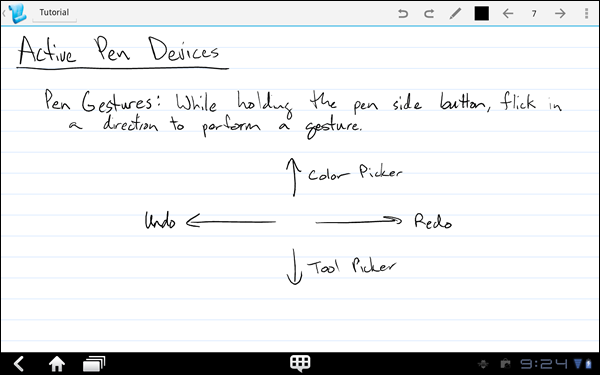 Tutorial
7
Active Pen Devices
Pen Gestures: While holding the pen side button, flick in
a direction to perform a gesture.
Color Picker
Undo
Redo
Tool Picker
9:24